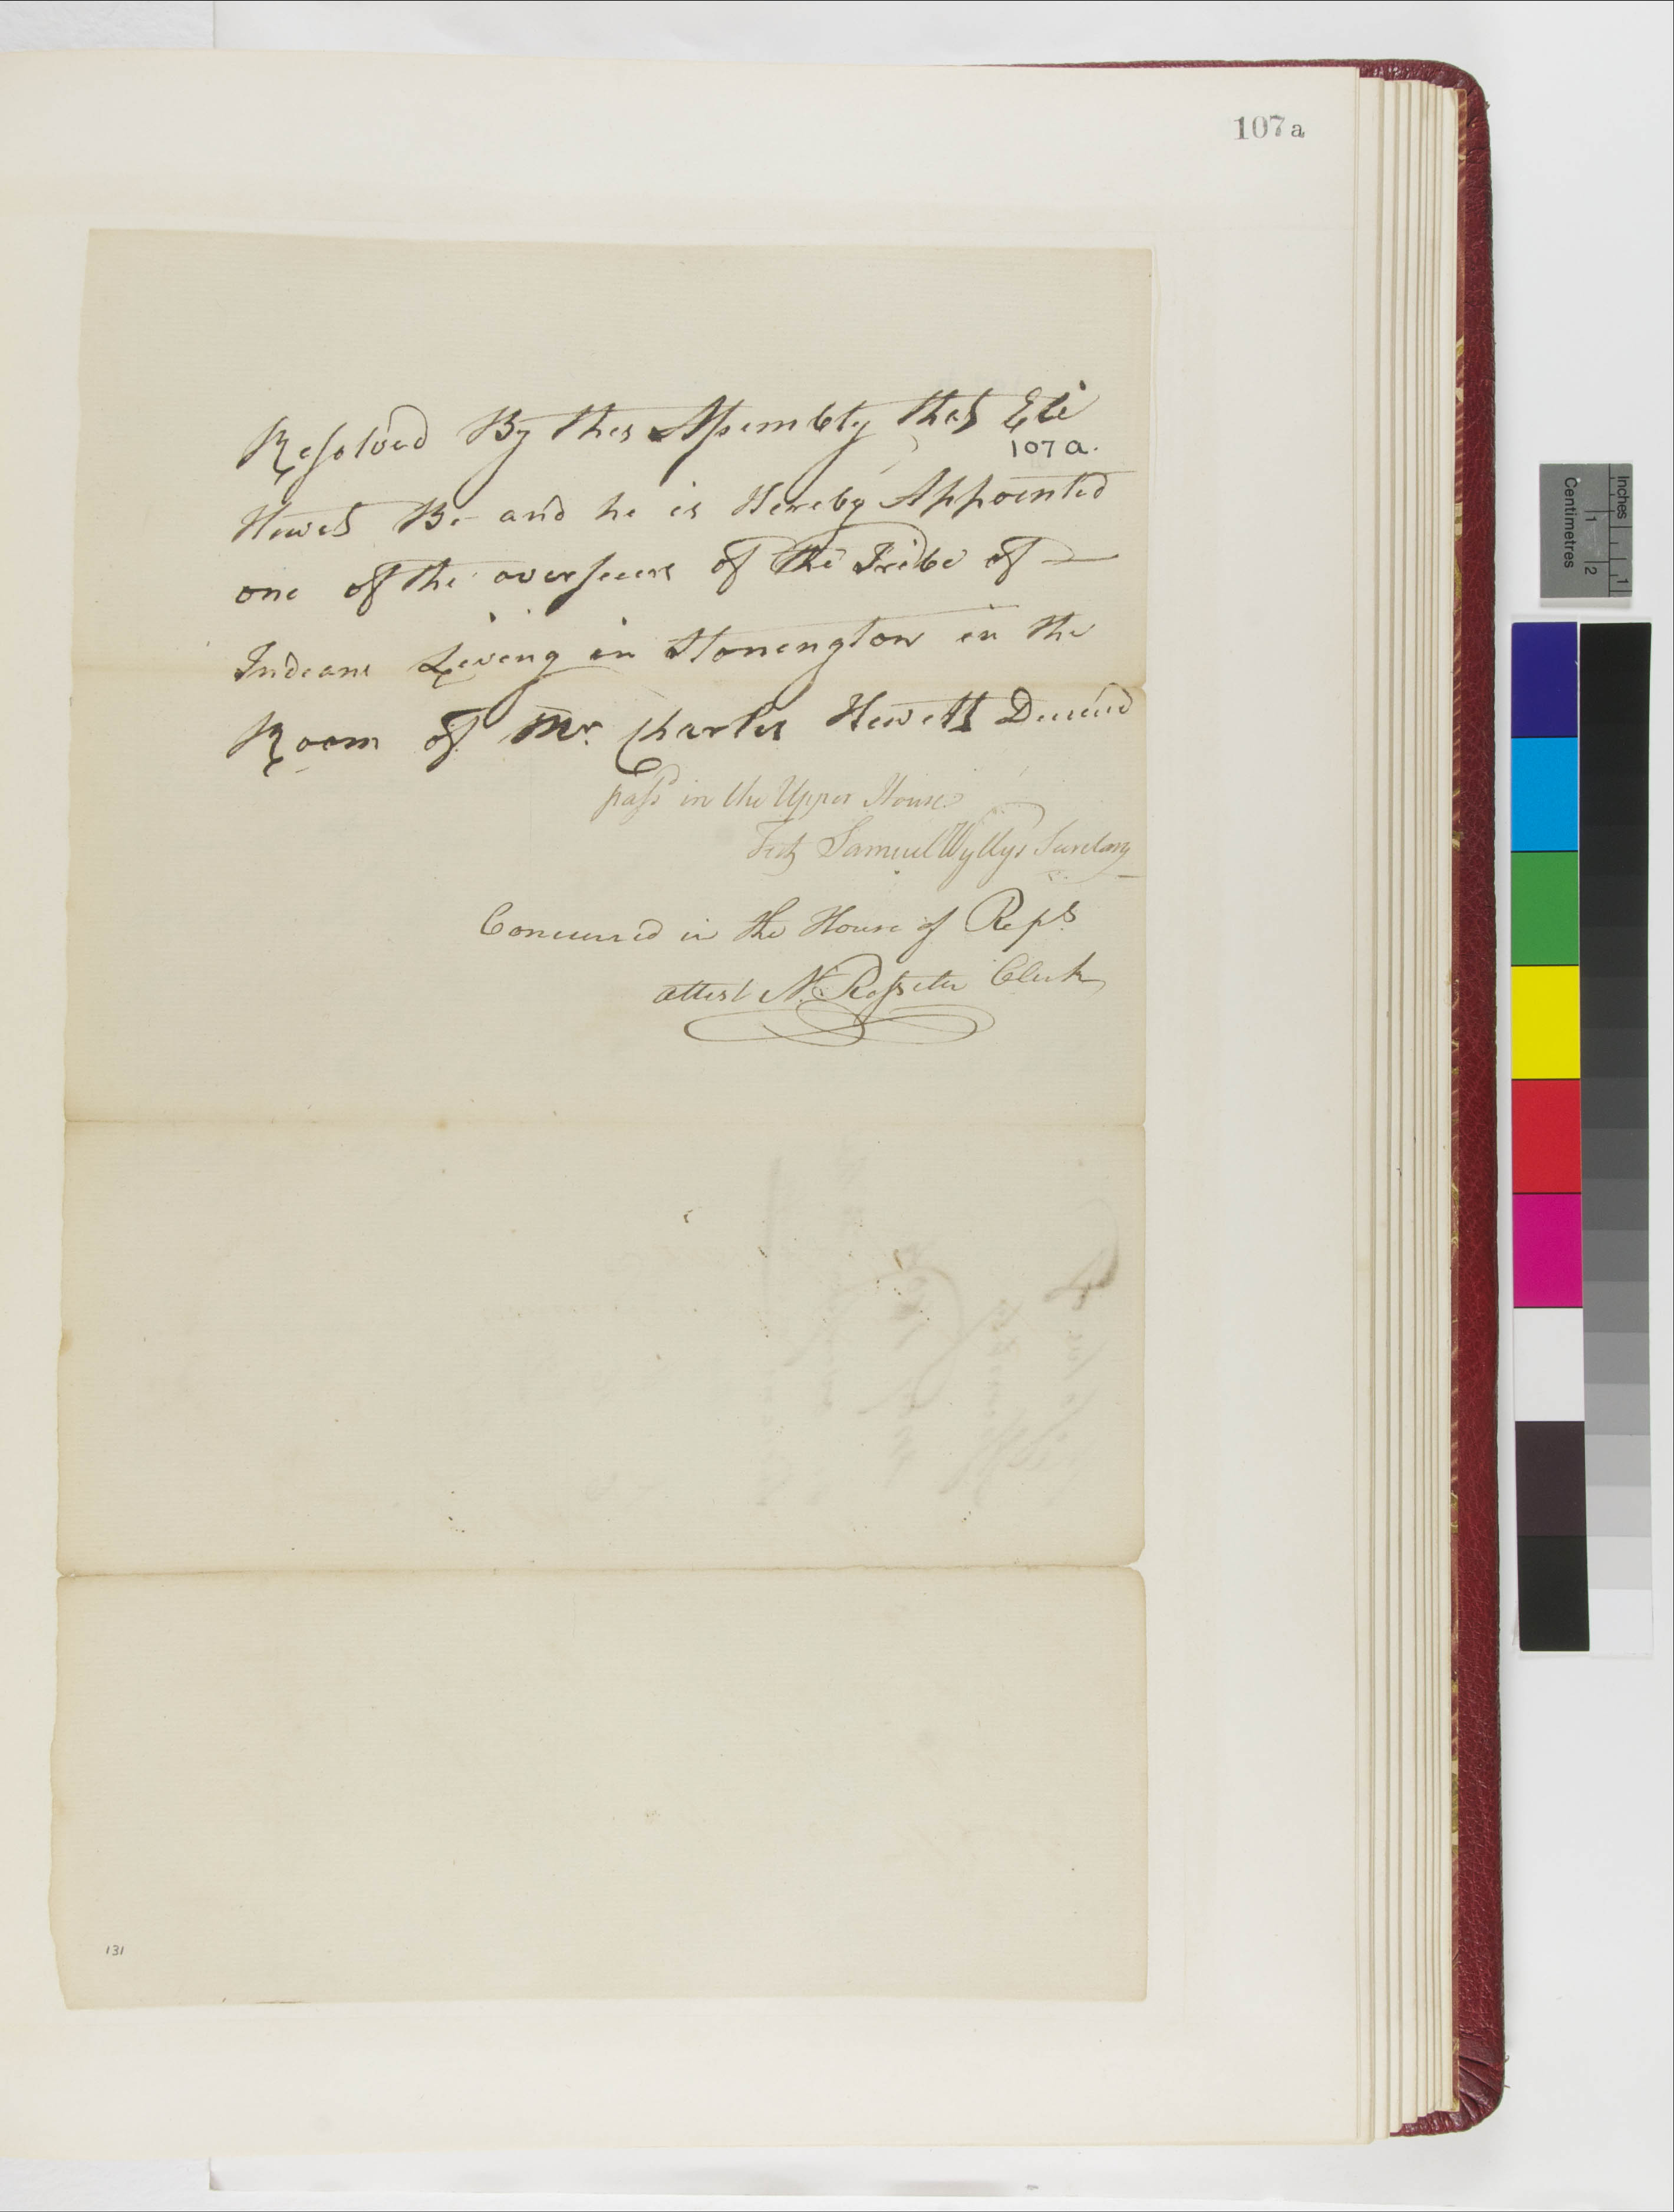 107a
Resolved By this Assembly that Eli
107a.
Hewet Be and he is Hereby Appointed
one of the overseers of the Tribe of
Indians Living in Stonington in the
Room of Mr. Charles Hewett Deceasd
passd in the Upper House
Test Samuel Wyllys Secretary
Concurred in the House of Reps
attest N. Rosseter Clerk
131
Inches
1
Centimetres
1
2